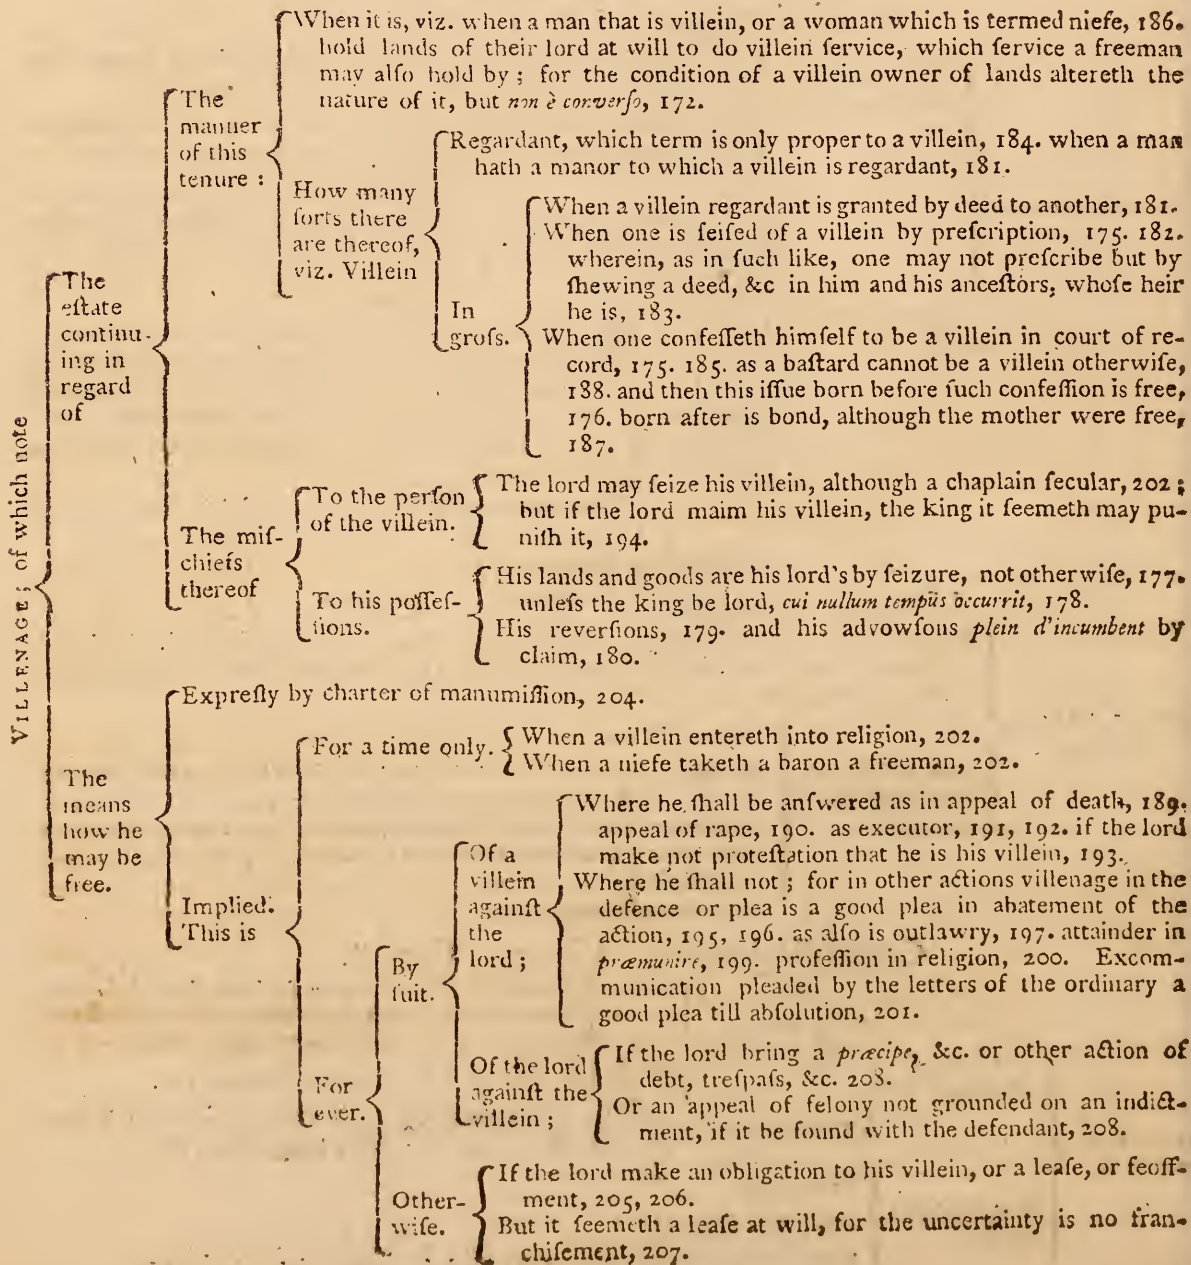 VILLENAGE; of which note
The
eſtate
continu-
ing in
regard
of
The
manner
of this
tenure :
When it is, viz. when a man that is villein, or a woman which is termed niefe, 186.
hold lands of their lord at will to do villein ſervice, which ſervice a freeman
may alſo hold by ; for the condition of a villein owner of lands altereth the
nature of it, but non è converſo, 172.
How many
ſorts there
are thereof,
viz. Villein
Regardant, which term is only proper to a villein, 184. when a man
hath a manor to which a villein is regardant, 181.
In
groſs.
When a villein regardant is granted by deed to another, 181.
When one is ſeiſed of a villein by preſcription, 175. 182.
wherein, as in ſuch like, one may not preſcribe but by
ſhewing a deed, &c in him and his anceſtors, whoſe heir
he is, 183.
When one confeſſeth himſelf to be a villein in court of re-
cord, 175. 185. as a baſtard cannot be a villein otherwiſe,
188. and then this iſſue born before ſuch confeſſion is free,
176. born after is bond, although the mother were free,
187.
The miſ-
chiefs
thereof
To the perſon
of the villein.
The lord may ſeize his villein, although a chaplain ſecular, 202 ;
but if the lord maim his villein, the king it ſeemeth may pu-
niſh it, 194.
To his poſſeſ-
ſions.
His lands and goods are his lord's by ſeizure, not otherwiſe, 177.
unleſs the king be lord, cui nullum tempus occurrit, 178.
His reverſions, 179. and his advowſons plein d'incumbent by
claim, 180.
The
means
how he
may be
free.
Expreſly by charter of manumiſſion, 204.
Implied.
This is
For a time only.
When a villein entereth into religion, 202.
When a niefe taketh a baron a freeman, 202.
For
ever.
By
ſuit.
Of a
villein
againſt
the
lord ;
Where he ſhall be anſwered as in appeal of death, 189.
appeal of rape, 190. as executor, 191, 192. if the lord
make not proteſtation that he is his villein, 193.
Where he ſhall not ; for in other actions villenage in the
defence or plea is a good plea in abatement of the
action, 195, 196. as alſo is outlawry, 197. attainder in
præmunire, 199. profeſſion in religion, 200. Excom-
munication pleaded by the letters of the ordinary a
good plea till abſolution, 201.
Of the lord
againſt the
villein ;
If the lord bring a præcipe, &c. or other action of
debt, treſpaſs, &c. 208.
Or an appeal of felony not grounded on an indict-
ment, if it be found with the defendant, 208.
Other-
wiſe.
If the lord make an obligation to his villein, or a leaſe, or feoff-
ment, 205, 206.
But it ſeemeth a leaſe at will, for the uncertainty is no fran-
chiſement, 207.